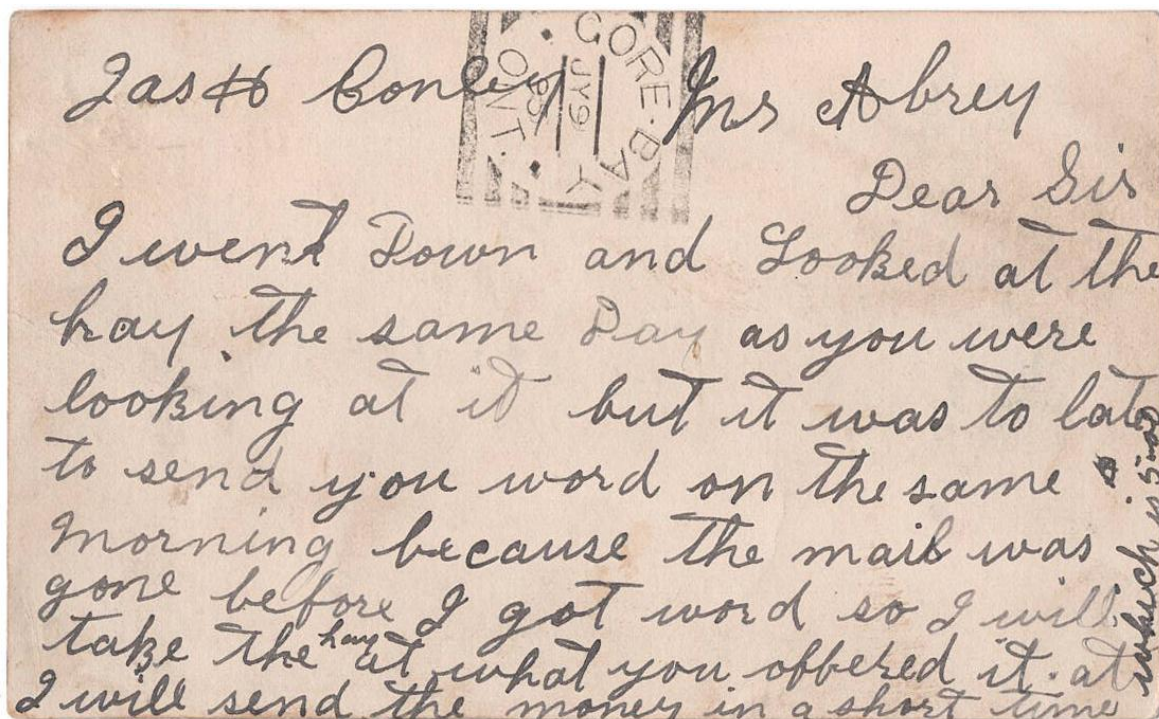 Jas H Conley Mr Abrey
Dear Sir
I went Down and Looked at the
hay the same Day as you were
looking at it but it was to late
to send you word on the same
morning because the mail was
gone before I got word so I will
take the hay at what you offered it. at
I will send the money in a short time
which is
GORE·BAY
JY 9
ONT.